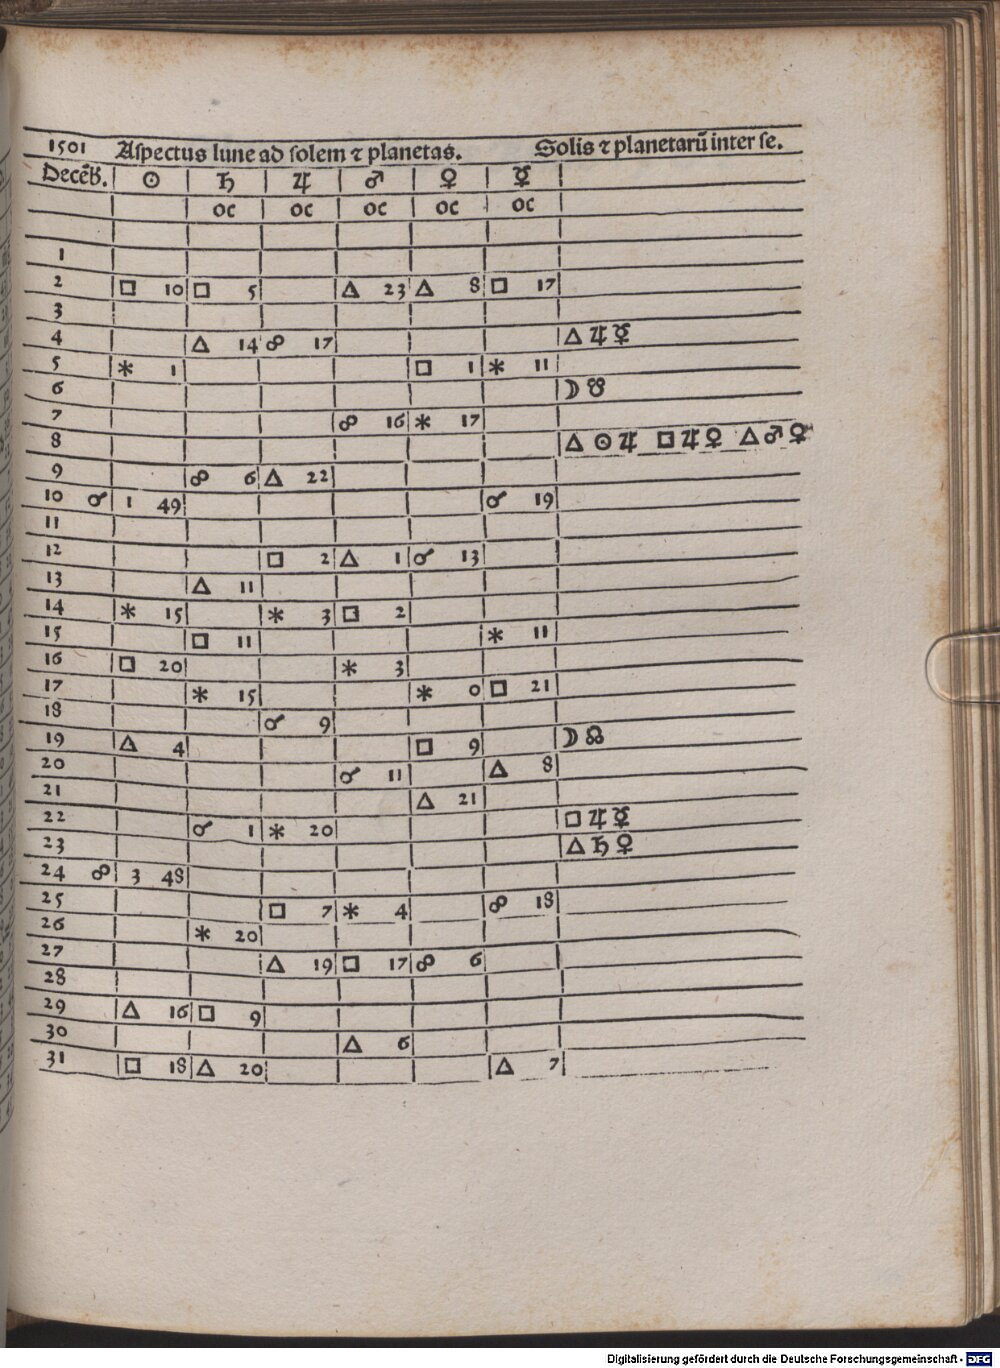 1501 Aſpectus lune ad ſolem ⁊ planetas. Solis ⁊ planetarũ inter ſe.
Decẽb. ☉ ♄ ♃ ♂ ♀ ☿
oc oc oc oc oc
1
2 □ 10 □ 5 △ 23 △ 8 □ 17
3
4 △ 14 ☍ 17 △ ♃ ☿
5 ⚹ 1 □ 1 ⚹ 11
6 ☽ ☋
7 ☍ 16 ⚹ 17
8 △ ☉ ♃ □ ♃ ♀ △ ♂ ♀
9 ☍ 6 △ 22
10 ☌ 1 49 ☌ 19
11
12 □ 2 △ 1 ☌ 13
13 △ 11
14 ⚹ 15 ⚹ 3 □ 2
15 □ 11 ⚹ 11
16 □ 20 ⚹ 3
17 ⚹ 15 ⚹ 0 □ 21
18 ☌ 9
19 △ 4 □ 9 ☽ ☊
20 ☌ 11 △ 8
21 △ 21
22 ☌ 1 ⚹ 20 □ ♃ ☿
23 △ ♄ ♀
24 ☍ 3 48
25 □ 7 ⚹ 4 ☍ 18
26 ⚹ 20
27 △ 19 □ 17 ☍ 6
28
29 △ 16 □ 9
30 △ 6
31 □ 18 △ 20 △ 7
Digitalisierung gefördert durch die Deutsche Forschungsgemeinschaft - DFG